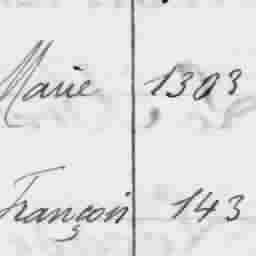 Marie 1303
François 143